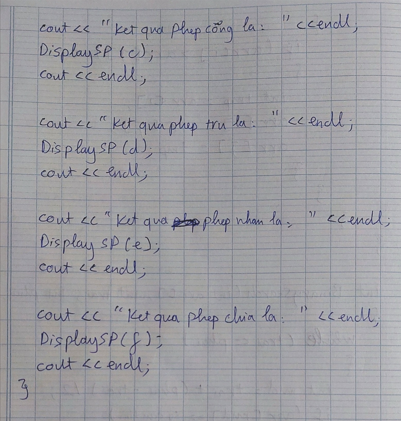 cout << "Ket qua phep cộng la: " <<endl;
DisplaySP(c);
cout << endl;
cout << "Ket qua phep tru la: " << endl;
DisplaySP(d);
cout << endl;
cout << "Ket qua phep nhan la: " <<endl;
DisplaySP(e);
cout << endl;
cout << "Ket qua phep chia la: " << endl;
DisplaySP(f);
cout << endl;
}